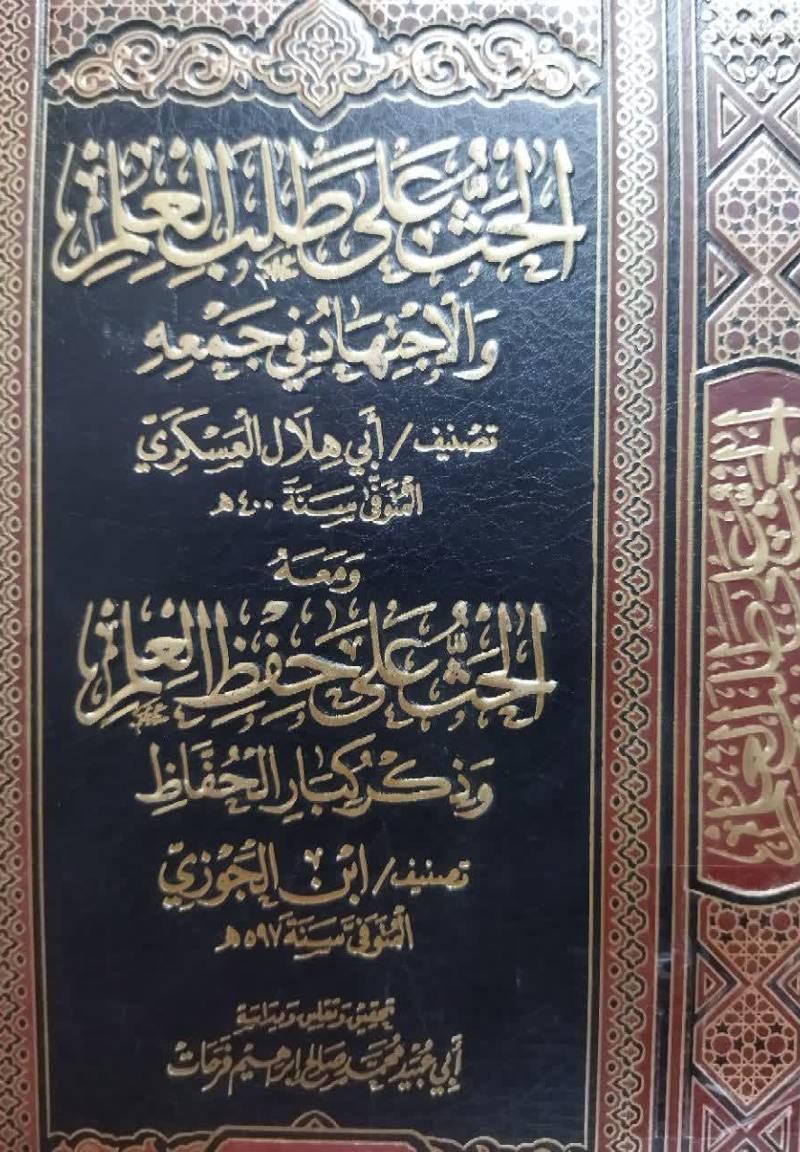 الحَثُّ عَلَى طَلَبِ العِلمِ
وَالاِجْتِهَادُ فِي جَمْعِهِ
تصنيف / أَبي هِلَال العَسْكَرِيّ
المُتَوَفَّى سَنَة ٤٠٠ هـ
وَمَعَهُ
الحَثُّ عَلَى حِفْظِ العِلْمِ
وَذِكْرُ كِبَارِ الحُفَّاظِ
تصنيف / ابْن الجَوْزِيّ
المُتَوَفَّى سَنَة ٥٩٧ هـ
تحقيق وتعليق ودراسة
أَبي عُبَيد مُحَمَّد صَالح إبرهيم فَرحَات
الحث على طلب العلم